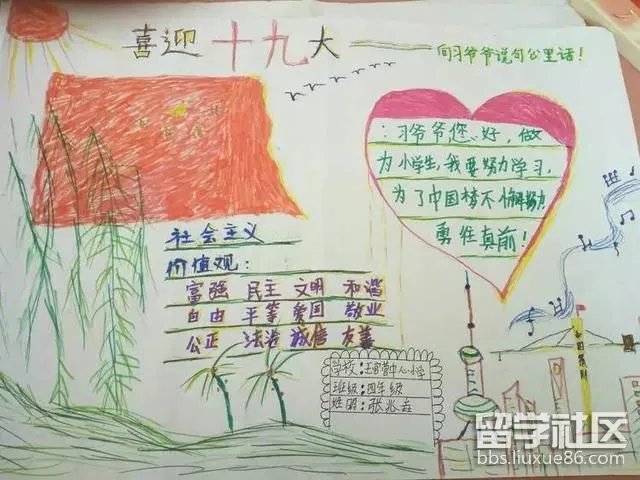 喜迎十九大
向习爷爷说句公里话!
:习爷爷您好,做
为小学生,我要努力学习,
为了中国梦不懈努力
勇往真前!
社会主义
价值观:
富强 民主 文明 和谐
自由 平等 爱国 敬业
公正 法治 诚信 友善
学校:王官营中心小学
班级:四年级
姓名:张兆
留学社区
bbs.liuxue86.com